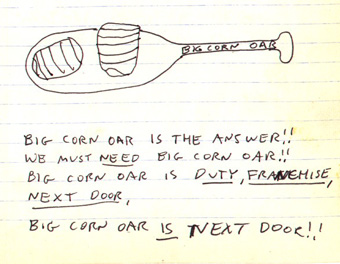 BIG CORN OAR
BIG CORN OAR IS THE ANSWER!!
WE MUST NEED BIG CORN OAR!!
BIG CORN OAR IS DUTY, FRANEMISE,
NEXT DOOR,
BIG CORN OAR IS NEXT DOOR!!